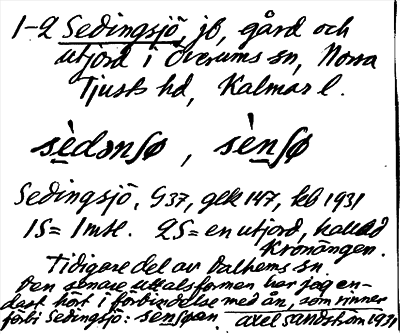 1-2 Sedingsjö, jb, gård och
utjord i Överums sn, Norra
Tjusts hd, Kalmar l.
sèdənſø , sènſø
Sedingsjö, G37, gek 147, kb 1931
1S= 1 mtl. 2S= en utjord, kallad
Kronängen.
Tidigare del av Dalhems sn.
Den senare uttalsformen har jag en-
dast hört i förbindelse med ån, som rinner
förbi Sedingsjö: axel Sandström 1931